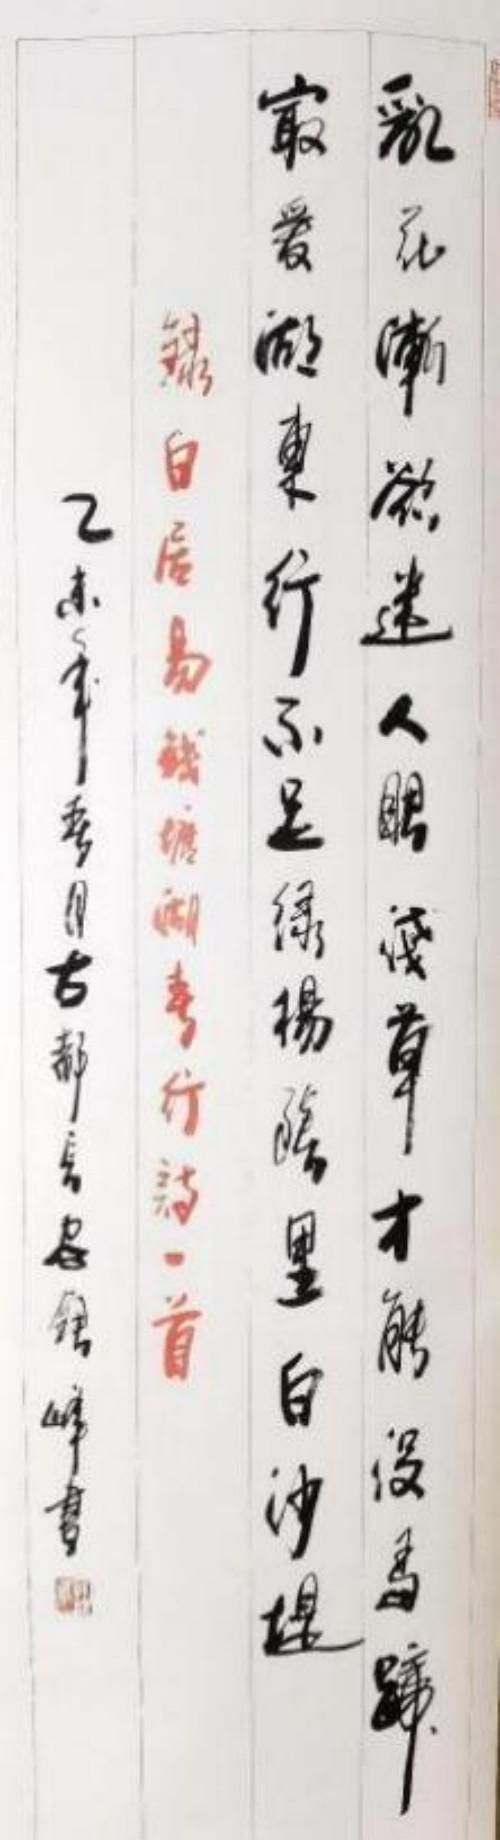 亂花漸欲迷人眼淺草才能没馬蹄
最愛湖東行不足綠楊陰里白沙堤
録白居易錢塘湖春行詩一首
乙未年春月古都長安銀峰書